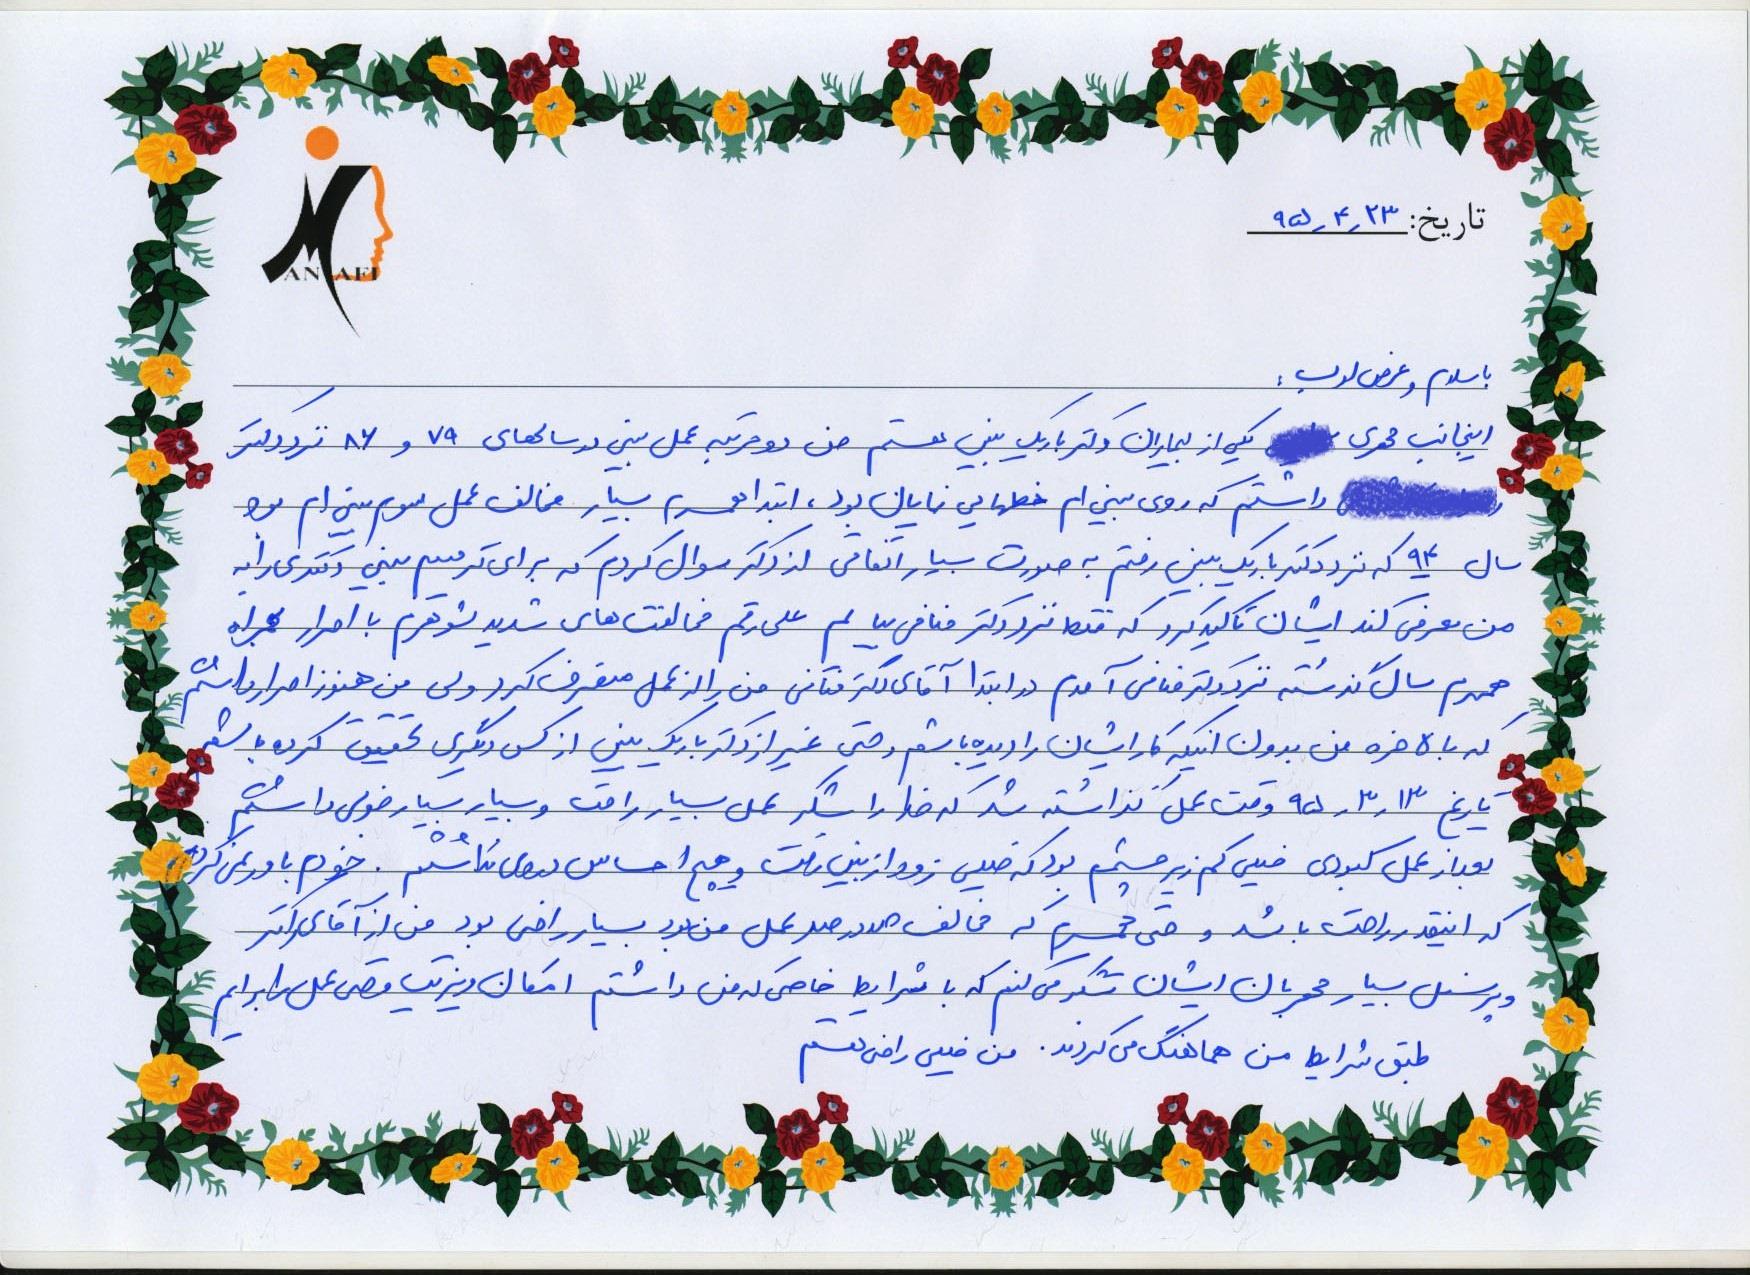 MANAFI
تاریخ: ۹۵٫۴٫۲۳
با سلام و عرض ادب:
اینجانب مهری یکی از بیماران دکتر باریک بین هستم من دو مرتبه عمل بینی در سالهای ۷۹ و ۸۶ نزد دکتر
داشتم که روی بینی ام خطهایی نمایان بود، ابتدا همسرم بسیار مخالف عمل سوم بینی ام بود
سال ۹۴ که نزد دکتر باریک بین رفتم به صورت بسیار اتفاقی از دکتر سوال کردم که برای ترمیم بینی دکتری را به
من معرفی کند ایشان تاکید کرد که فقط نزد دکتر منافی بیایم علی رقم مخالفت های شدید شوهرم با اصرار همراه
همسرم سال گذشته نزد دکتر منافی آمدم در ابتدا آقای دکتر منافی من را از عمل منصرف کرد ولی من هنوز اصرار داشتم
که بالاخره من بدون اینکه کار ایشان را دیده باشم و حتی غیر از دکتر باریک بین از کس دیگری تحقیق کرده باشم
تاریخ ۹۵٫۳٫۱۳ وقت عمل گذاشته شد که خدا را شکر عمل بسیار راحت و بسیار بسیار خوبی داشتم
بعد از عمل کبودی خیلی کم زیر چشمم بود که خیلی زود از بین رفت و هیچ احساس دردی نداشتم. خودم باور نمی کردم
که اینقدر راحت باشد و حتی همسرم که مخالف صددرصد عمل من بود بسیار راضی بود من از آقای دکتر
و پرسنل بسیار مهربان ایشان تشکر می کنم که با شرایط خاصی که من داشتم امکان ویزیت و حتی عمل را برایم
طبق شرایط من هماهنگ می کردند. من خیلی راضی هستم